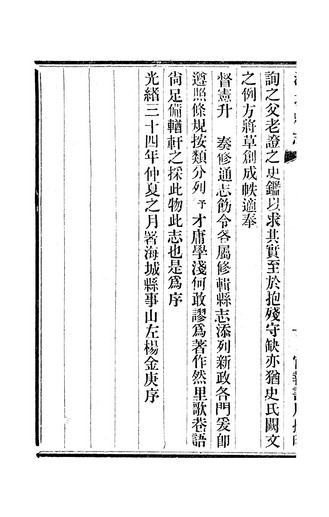 詢之父老證之史鑑以求其實至於抱殘守缺亦猶史氏闕文
之例方將草創成帙適奉
督憲升 奏修通志飭令各屬修輯縣志添列新政各門爰卽
遵照條規按類分列予才庸學淺何敢謬爲著作然里歌巷語
尙足備輶軒之採此物此志也是爲序
光緒三十四年仲夏之月署海城縣事山左楊金庚序